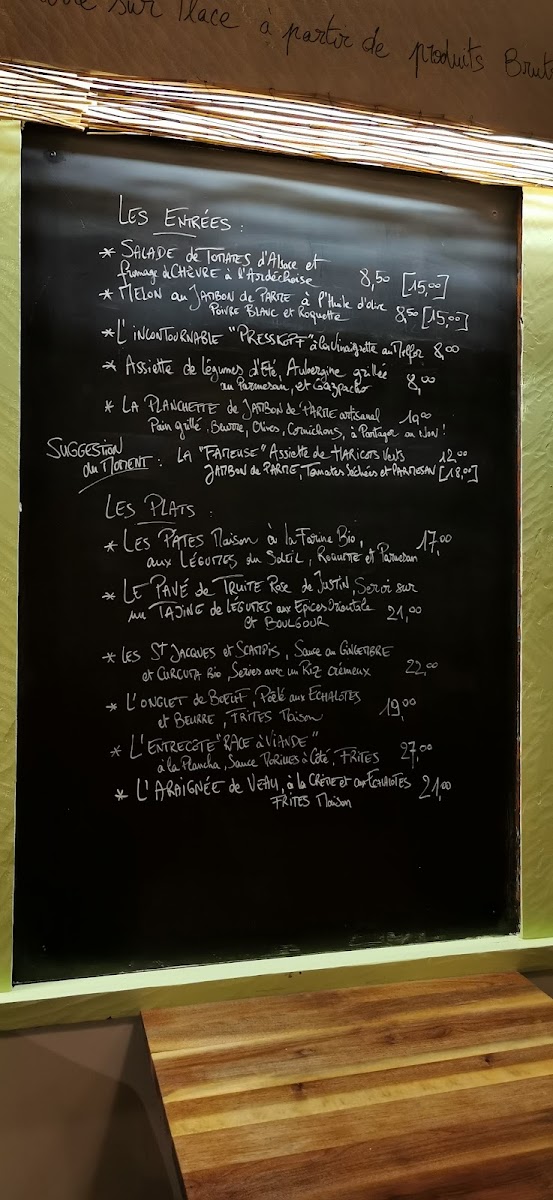 sur Place à partir de produits Bruts
LES ENTRÉES :
* SALADE de TOMATES d'Alsace et
fromage de CHÈVRE à l'Ardéchoise 8,50 [15,00]
* MELON au JAMBON de PARME à l'Huile d'olive
POIVRE BLANC et Roquette 8,50 [15,00]
* L'INCONTOURNABLE "PRESSKOPF" à la Vinaigrette au Melfor 8,00
* Assiette de légumes d'Eté, Aubergine grillée
au Parmesan, et Gazpacho 8,00
* LA PLANCHETTE de JAMBON de PARME artisanal 19,00
Pain grillé, Beurre, Olives, Cornichons, à Partager ou Non !
SUGGESTION
du MOMENT : LA "FAMEUSE" Assiette de HARICOTS Verts 12,00
JAMBON de PARME, Tomates Séchées et PARMESAN [18,00]
LES PLATS :
* LES PÂTES Maison à la Farine Bio, 17,00
aux LÉGUMES du SOLEIL, ROQUETTE et Parmesan
* LE PAVÉ de TRUITE Rose de JUSTIN, Servi sur
un TAJINE de LÉGUMES aux Epices Orientale 21,00
et BOULGOUR
* LES ST JACQUES et SCAMPIS, Sauce au GINGEMBRE
et CURCUMA Bio, Servies avec un RIZ crémeux 22,00
* L'ONGLET de BOEUF, Poêlé aux ECHALOTES
et BEURRE, FRITES Maison 19,00
* L'ENTRECÔTE "RACE à VIANDE"
à la Plancha, Sauce MORILLES à Côté, FRITES 27,00
* L'ARAIGNÉE de VEAU, à la CRÈME et aux ECHALOTES 21,00
FRITES Maison